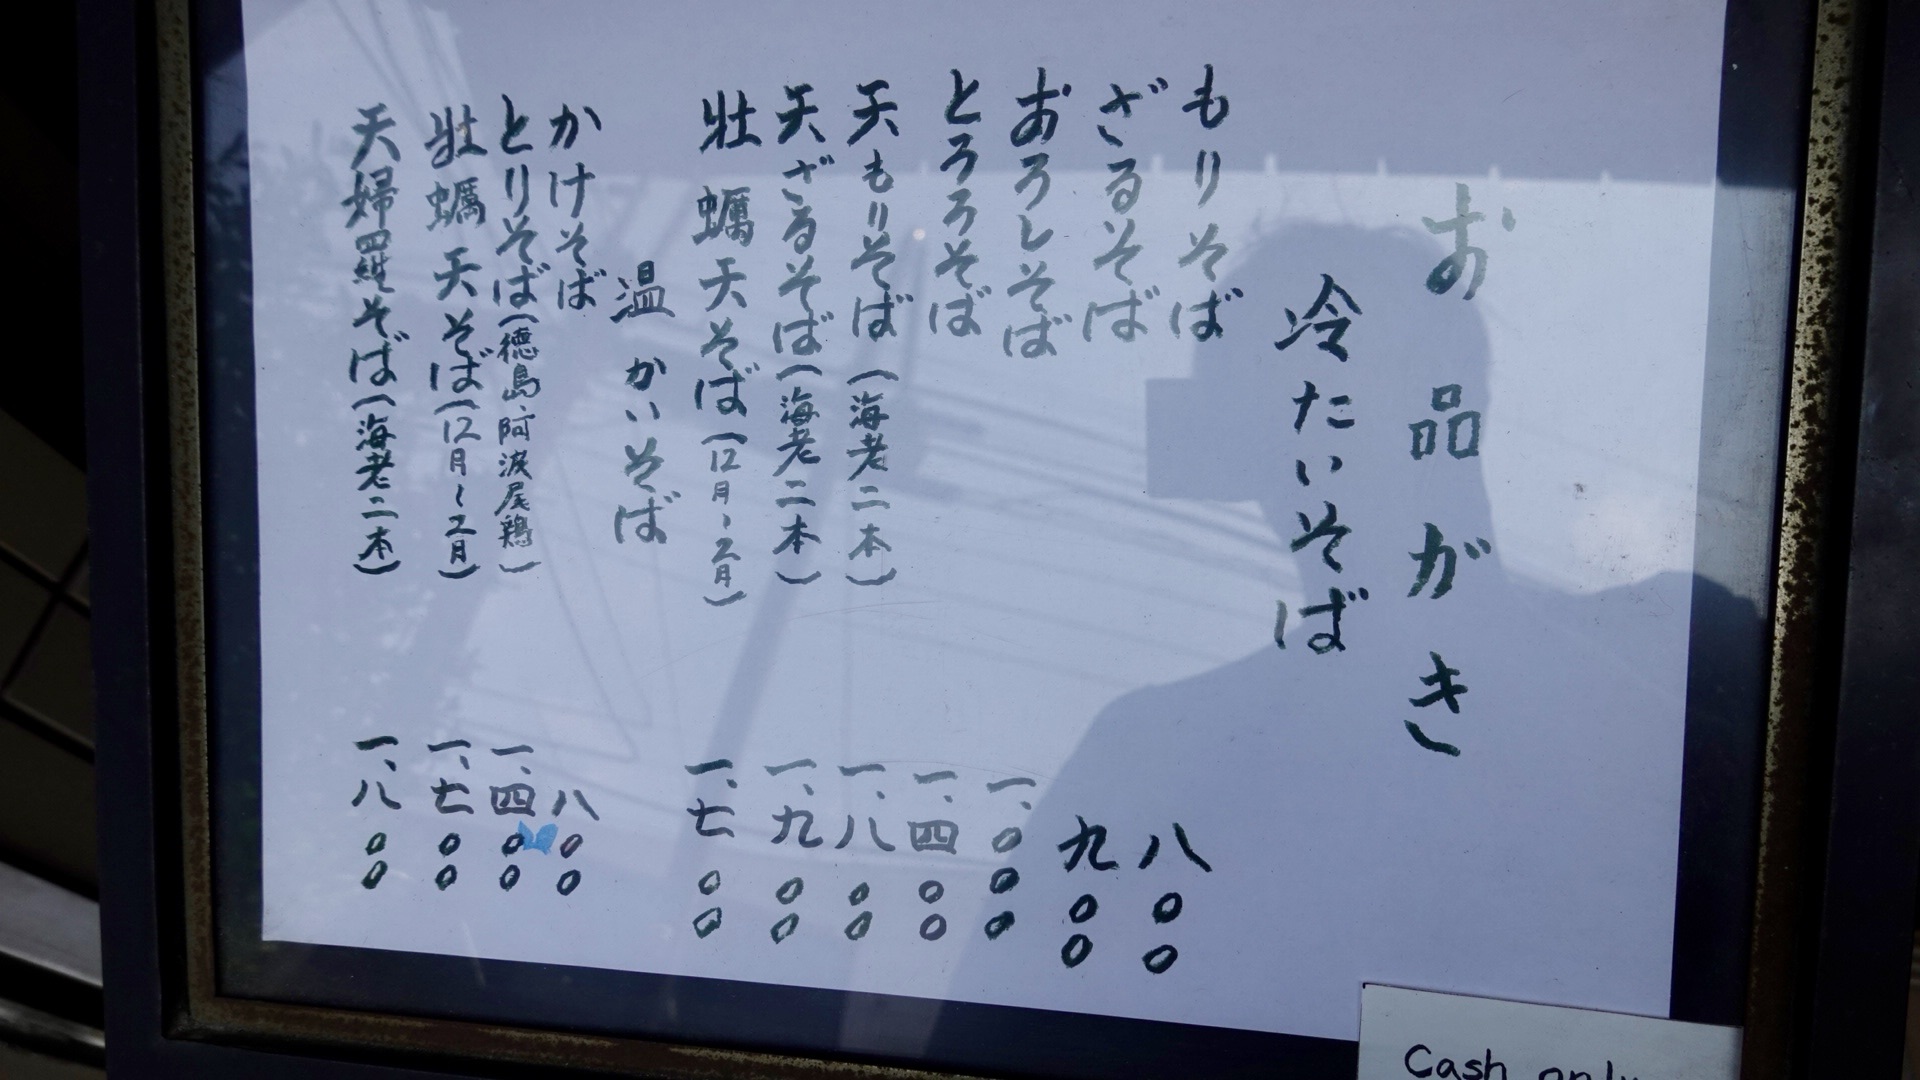 お品がき
冷たいそば
もりそば 八〇〇
ざるそば 九〇〇
おろしそば 一、〇〇〇
とろろそば 一、四〇〇
天もりそば(海老二本) 一、八〇〇
天ざるそば(海老二本) 一、九〇〇
牡蠣天そば(12月~2月) 一、七〇〇
温かいそば
かけそば 八〇〇
とりそば(徳島、阿波尾鶏) 一、四〇〇
牡蠣天そば(12月~2月) 一、七〇〇
天婦羅そば(海老二本) 一、八〇〇
Cash only